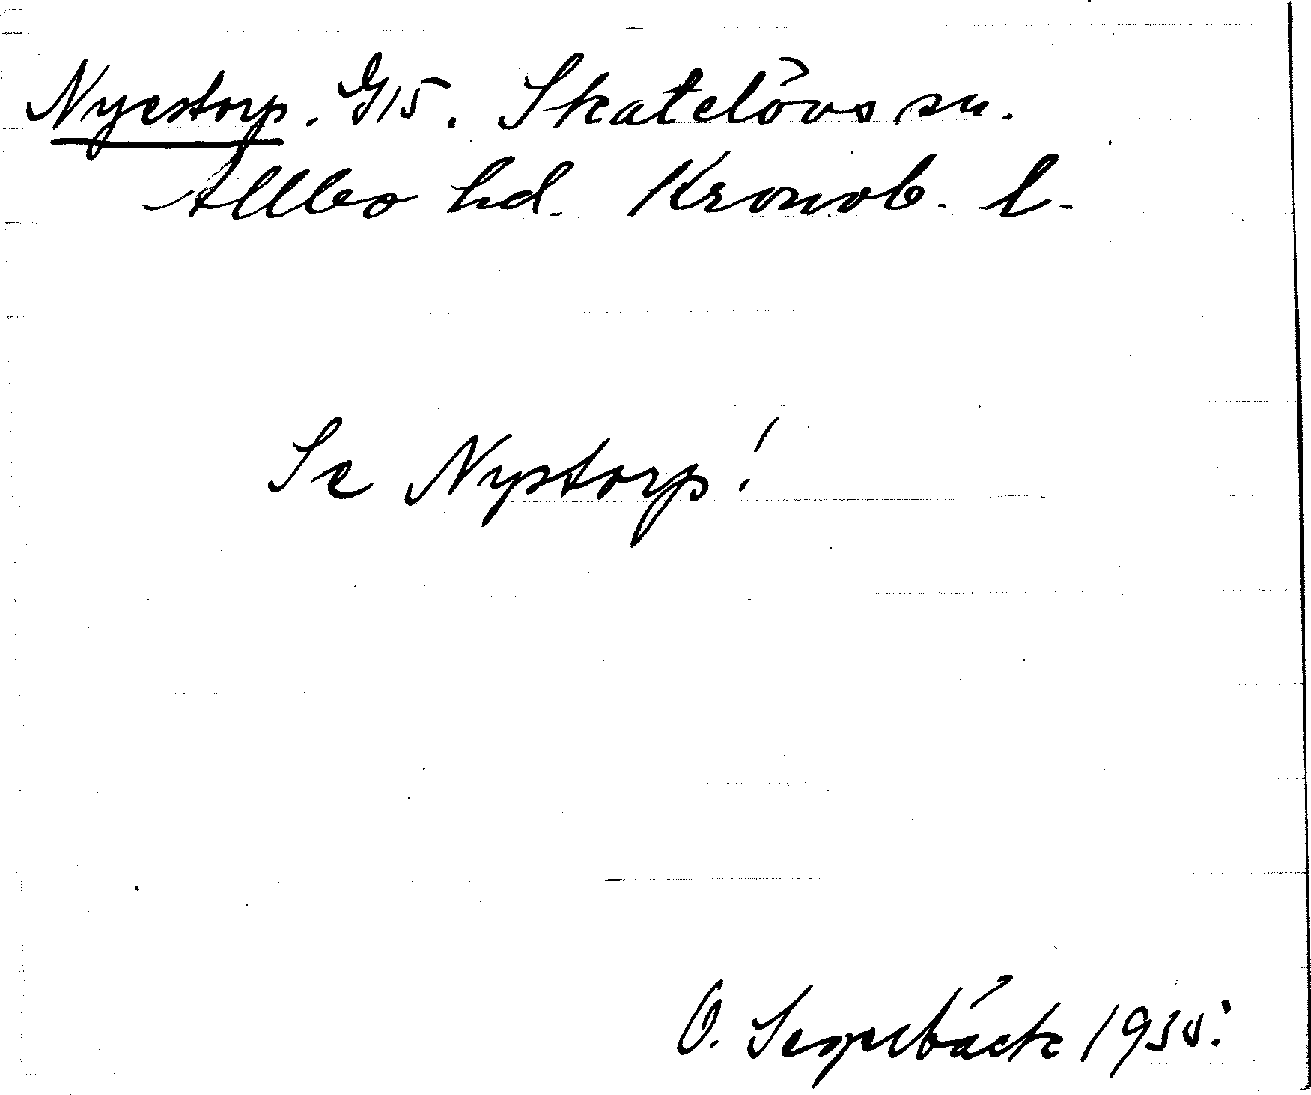 Nyestorp. G15. Skatelövs sn.
Allbo hd. Kronob. l.
Se Nystorp!
O. Segerbäck